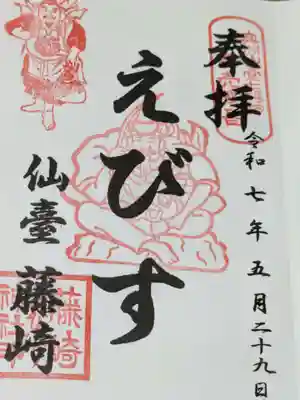 奉拝
令和七年五月二十九日
えびす
仙臺 藤崎
藤崎